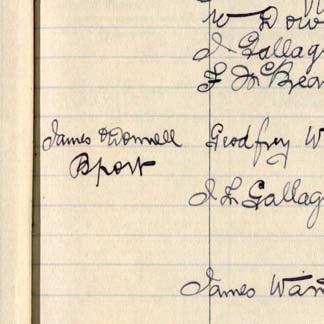 W Dow
J Gallag
F McBrear
James O'Donnell
Bport
Geodfrey W
J F Gallag
James Wa